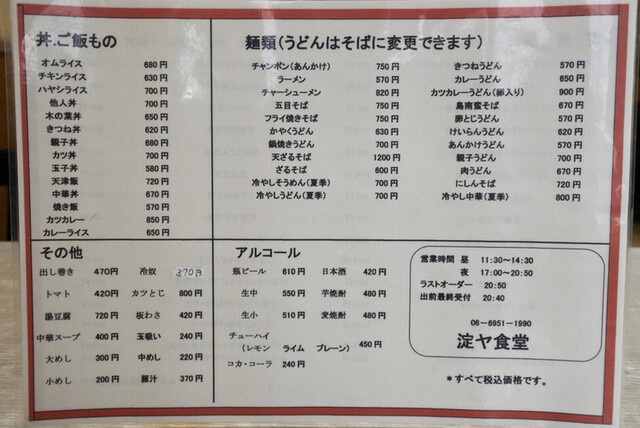 丼.ご飯もの
オムライス 680円
チキンライス 630円
ハヤシライス 700円
他人丼 700円
木の葉丼 650円
きつね丼 620円
親子丼 680円
カツ丼 700円
玉子丼 580円
天津飯 720円
中華丼 670円
焼き飯 570円
カツカレー 850円
カレーライス 650円
麺類(うどんはそばに変更できます)
チャンポン(あんかけ) 750円
ラーメン 570円
チャーシューメン 820円
五目そば 750円
フライ焼きそば 750円
かやくうどん 630円
鍋焼きうどん 700円
天ざるそば 1200円
ざるそば 600円
冷やしそうめん(夏季) 700円
冷やしうどん(夏季) 700円
きつねうどん 570円
カレーうどん 650円
カツカレーうどん(卵入り) 900円
鳥南蛮そば 670円
卵とじうどん 570円
けいらんうどん 570円
あんかけうどん 570円
親子うどん 700円
肉うどん 670円
にしんそば 720円
冷やし中華(夏季) 800円
その他
出し巻き 470円 冷奴 370円
トマト 420円 カツとじ 800円
湯豆腐 720円 板わさ 420円
中華スープ 400円 玉吸い 240円
大めし 300円 中めし 220円
小めし 200円 豚汁 370円
アルコール
瓶ビール 610円 日本酒 420円
生中 550円 芋焼酎 480円
生小 510円 麦焼酎 480円
チューハイ
(レモン ライム プレーン) 450円
コカ・コーラ 240円
営業時間 昼 11:30~14:30
夜 17:00~20:50
ラストオーダー 20:50
出前最終受付 20:40
06-6951-1990
淀ヤ食堂
*すべて税込価格です。